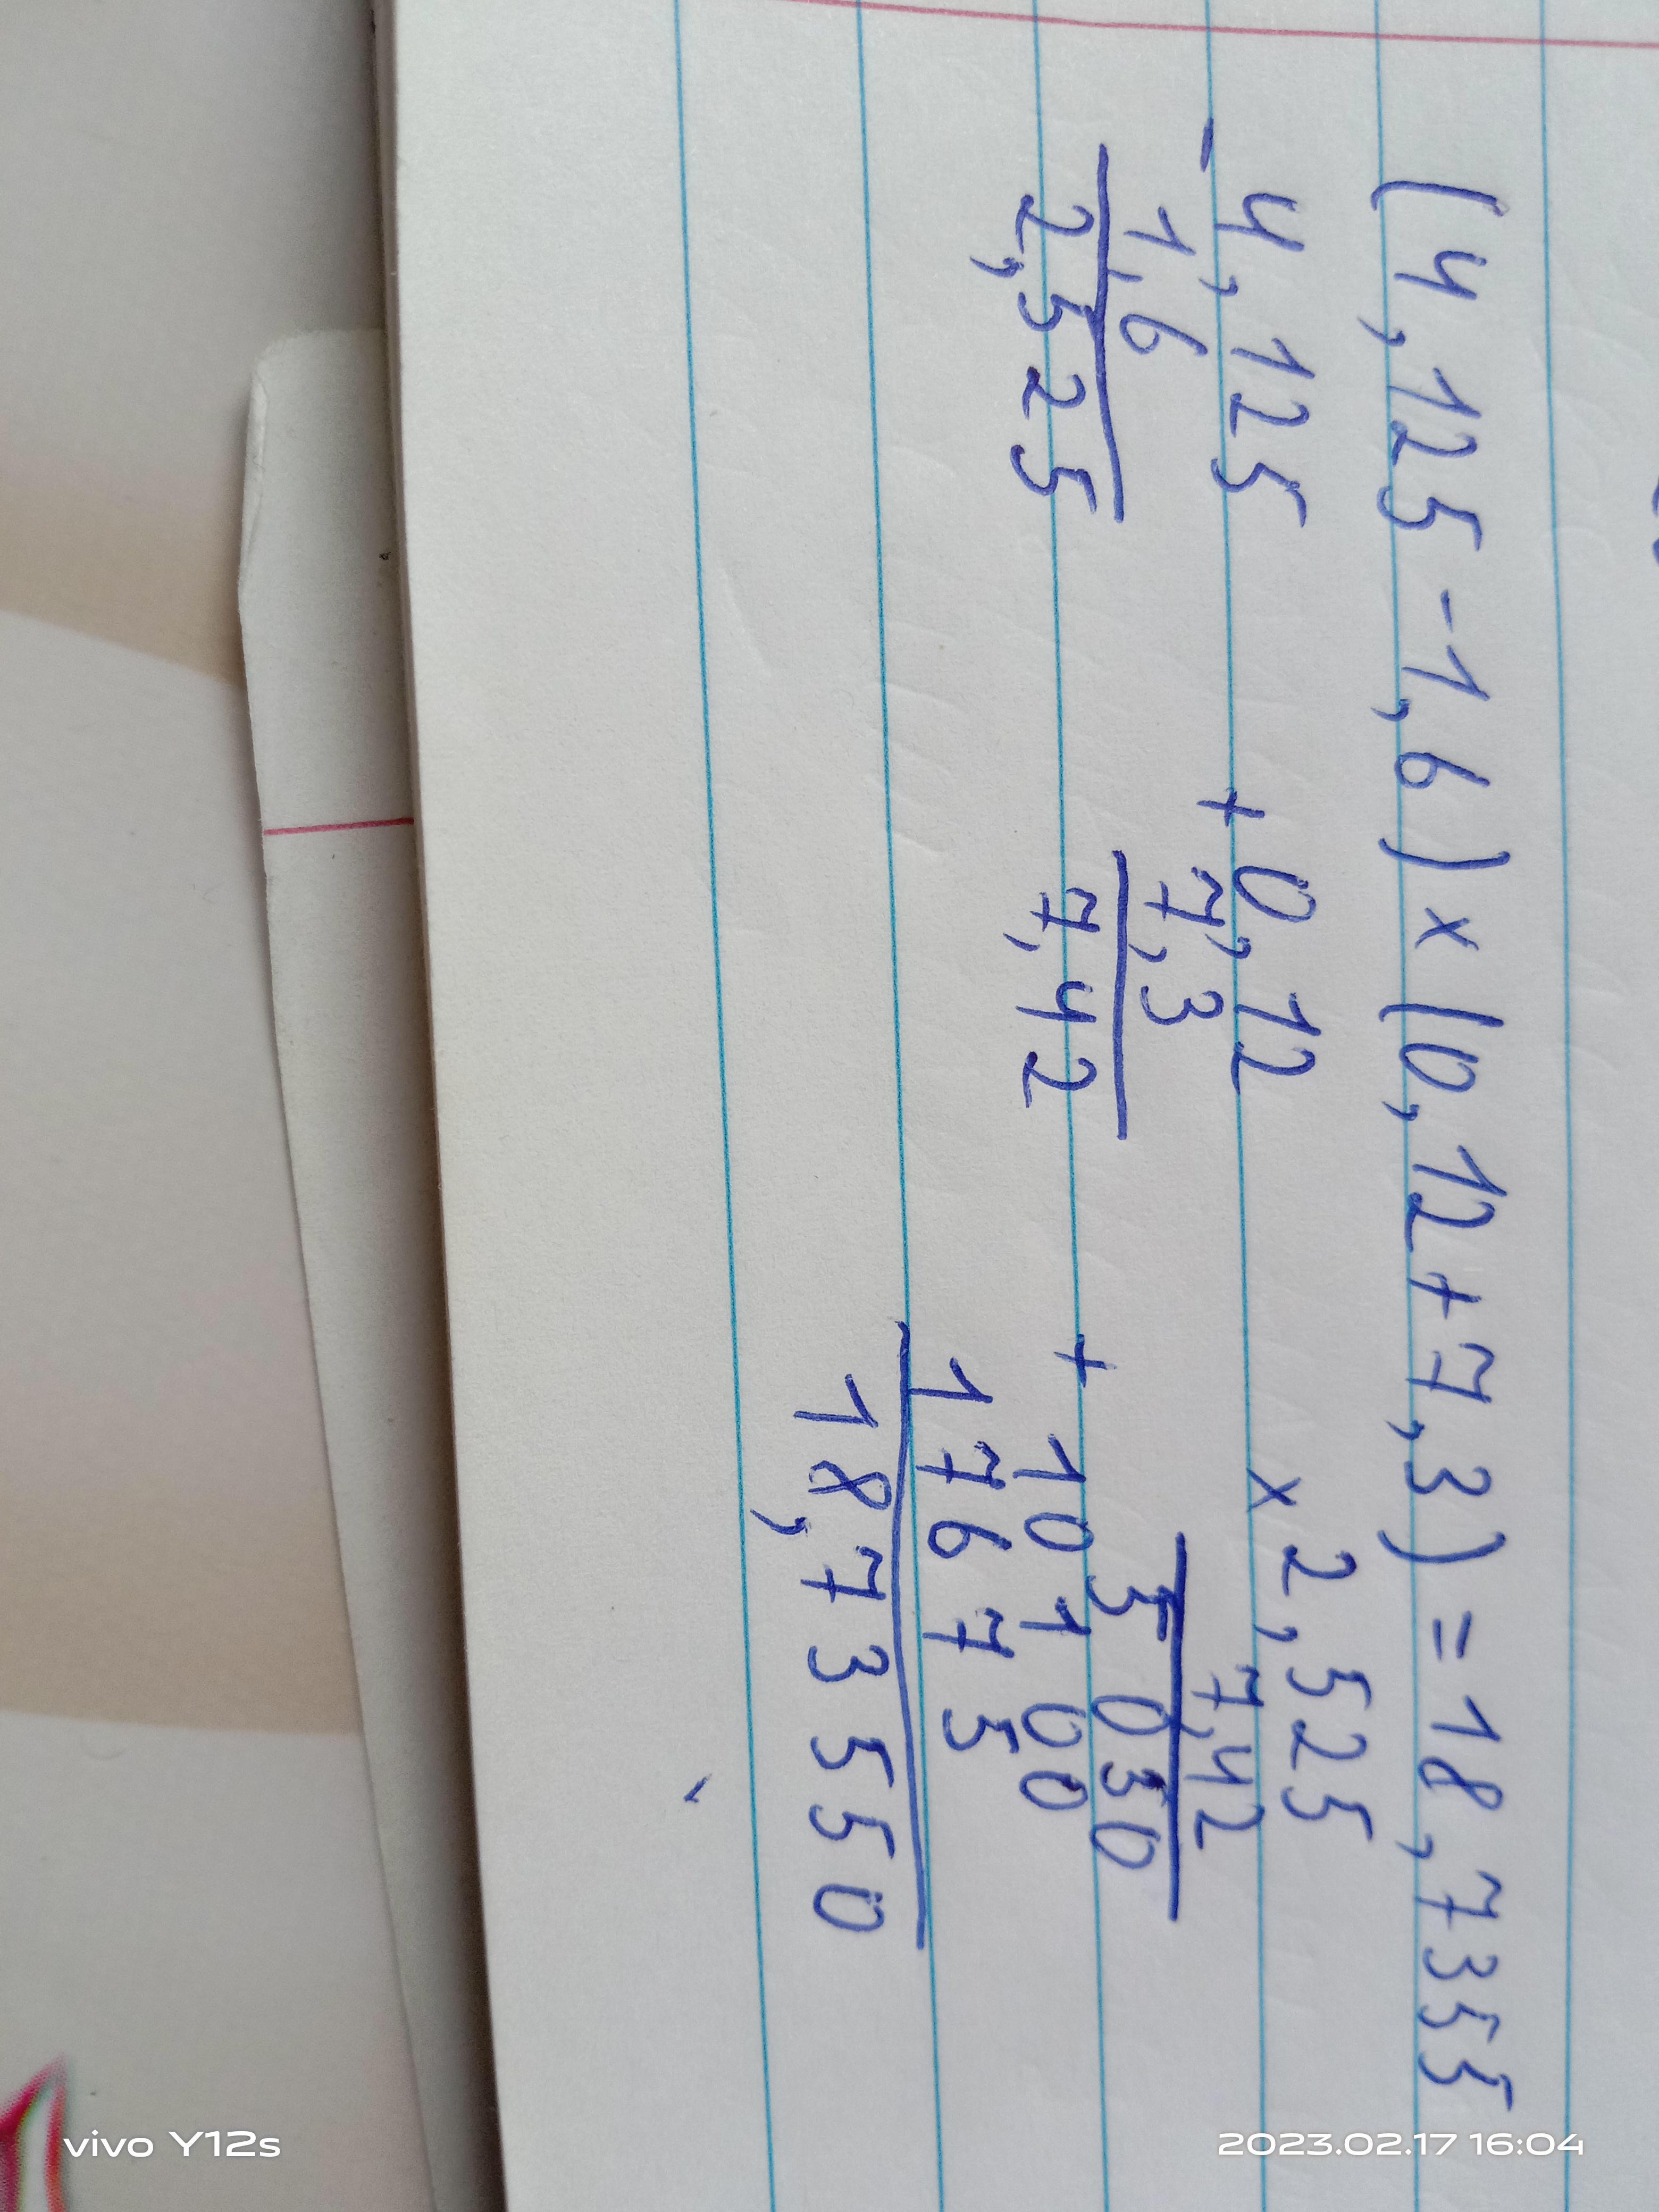 (4,125-1,6)x(0,12+7,3)=18,7355
- 4,125 + 0,12 x 2,525
1,6 7,3 7,42
2,525 7,42 5 030
+ 10 1 00
1 7 6 7 5
18,73550
vivo Y12s 2023.02.17 16:04